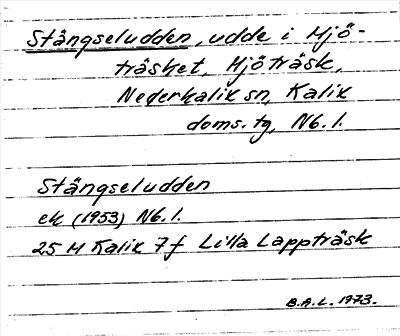 Stängseludden, udde i Mjö-
träsket, Mjöträsk,
Nederkalix sn, Kalix
doms. tg, Nb. l.
Stängseludden
ek (1953) Nb. l.
25 M Kalix 7f Lilla Lappträsk
B.A.L. 1973.